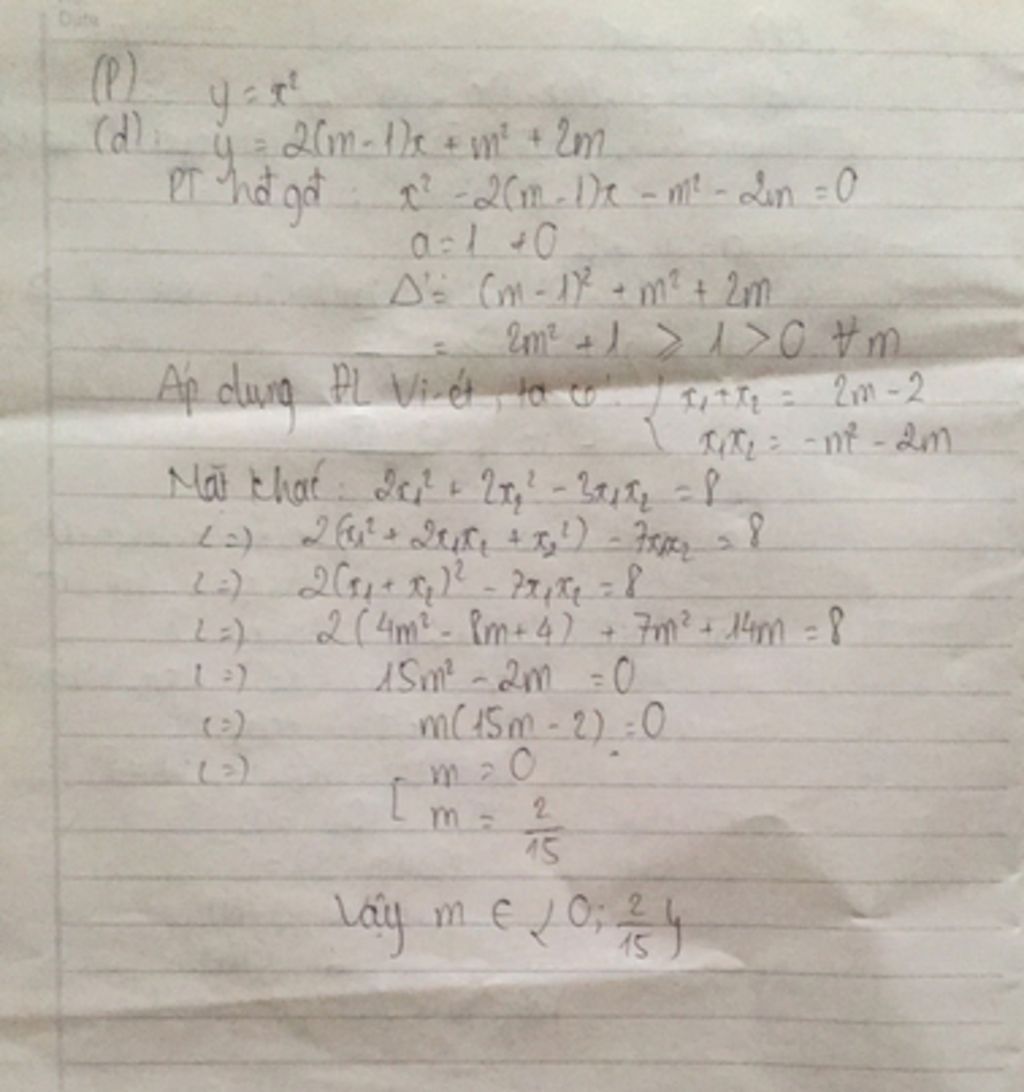 Date
(P) y = x²
(d): y = 2(m-1)x + m² + 2m
PT hđ gđ: x² - 2(m-1)x - m² - 2m = 0
a = 1 ≠ 0
Δ' = (m-1)² + m² + 2m
= 2m² + 1 ≥ 1 > 0 ∀m
Áp dụng ĐL Vi-ét, ta có: { x₁+x₂ = 2m-2
x₁x₂ = -m² - 2m
Mặt khác: 2x₁² + 2x₂² - 3x₁x₂ = 8
(=) 2(x₁² + 2x₁x₂ + x₂²) - 7x₁x₂ = 8
(=) 2(x₁ + x₂)² - 7x₁x₂ = 8
(=) 2(4m² - 8m + 4) + 7m² + 14m = 8
(=) 15m² - 2m = 0
(=) m(15m - 2) = 0
(=) [ m = 0
m = 2/15
Vậy m ∈ {0; 2/15}